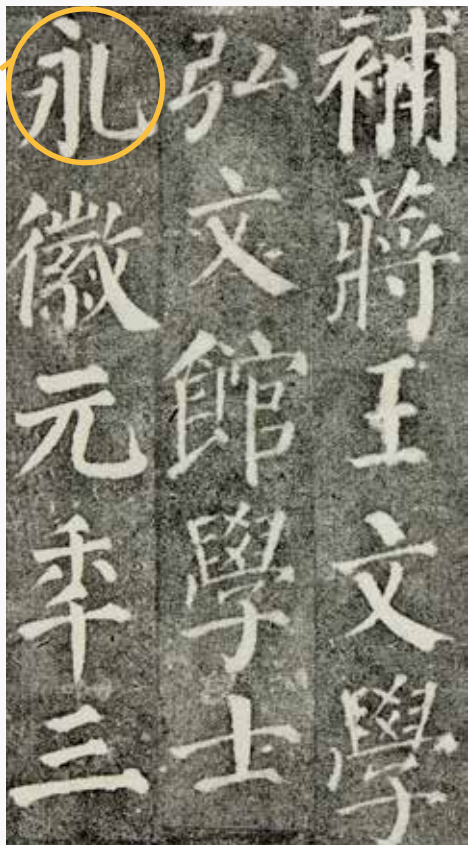 補蔣王文學
弘文館學士
永徽元年三